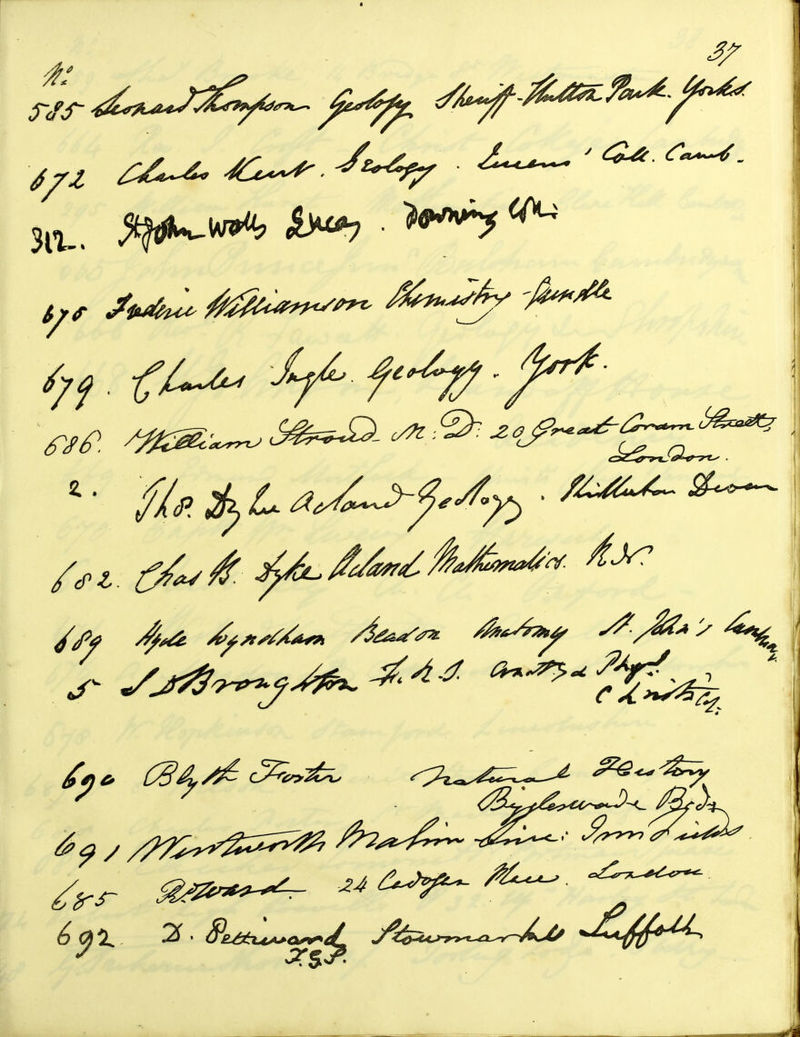 37
No.
585 Leonard Thompson Geology Sheriff-Hutton Park. Yorks.
672 Charles Kent. Geology. Queens' Coll. Camb.
312. St John Wells Lucas. Downing Coll:
675 Frederic Williamson Chemistry
679. Charles Ingle. Geology. York.
686. William Stroud M: D: 20 Great Coram Street,
London.
2. Thos. Dyke Acland Geology. Killerton Devon
682. Chas B. Dyke Acland Mathematics. R.N.
689 Hyde Wyndham Beadon Anatomy St. John's Cambridge
5 S D Broughton F. R. S. Anat:y & Phys:l
Christs Col:
690 Blyth Foster Natural History
Biggleswade Beds
691 Wentworth Malim Linc: Inn Fields
685 R. Ward. 24 Cadogan Place. London
692 D. Pettiward Stowmarket Suffolk
F.G.S.